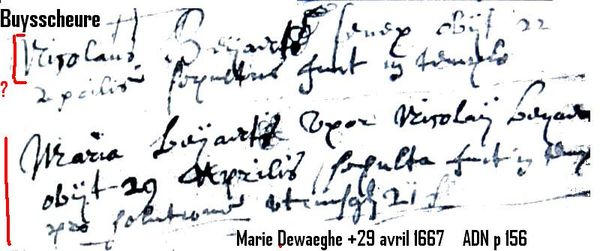 Buysscheure
Nicolaus Beÿaert senex obijt 22
aprilis sepultus fuit in templo
?
Maria beÿaert Uxor Nicolaij beyaer
obijt 29 Aprilis sepulta fuit in temp
pro solutione utriusq 21
Marie Dewaeghe +29 avril 1667 ADN p 156